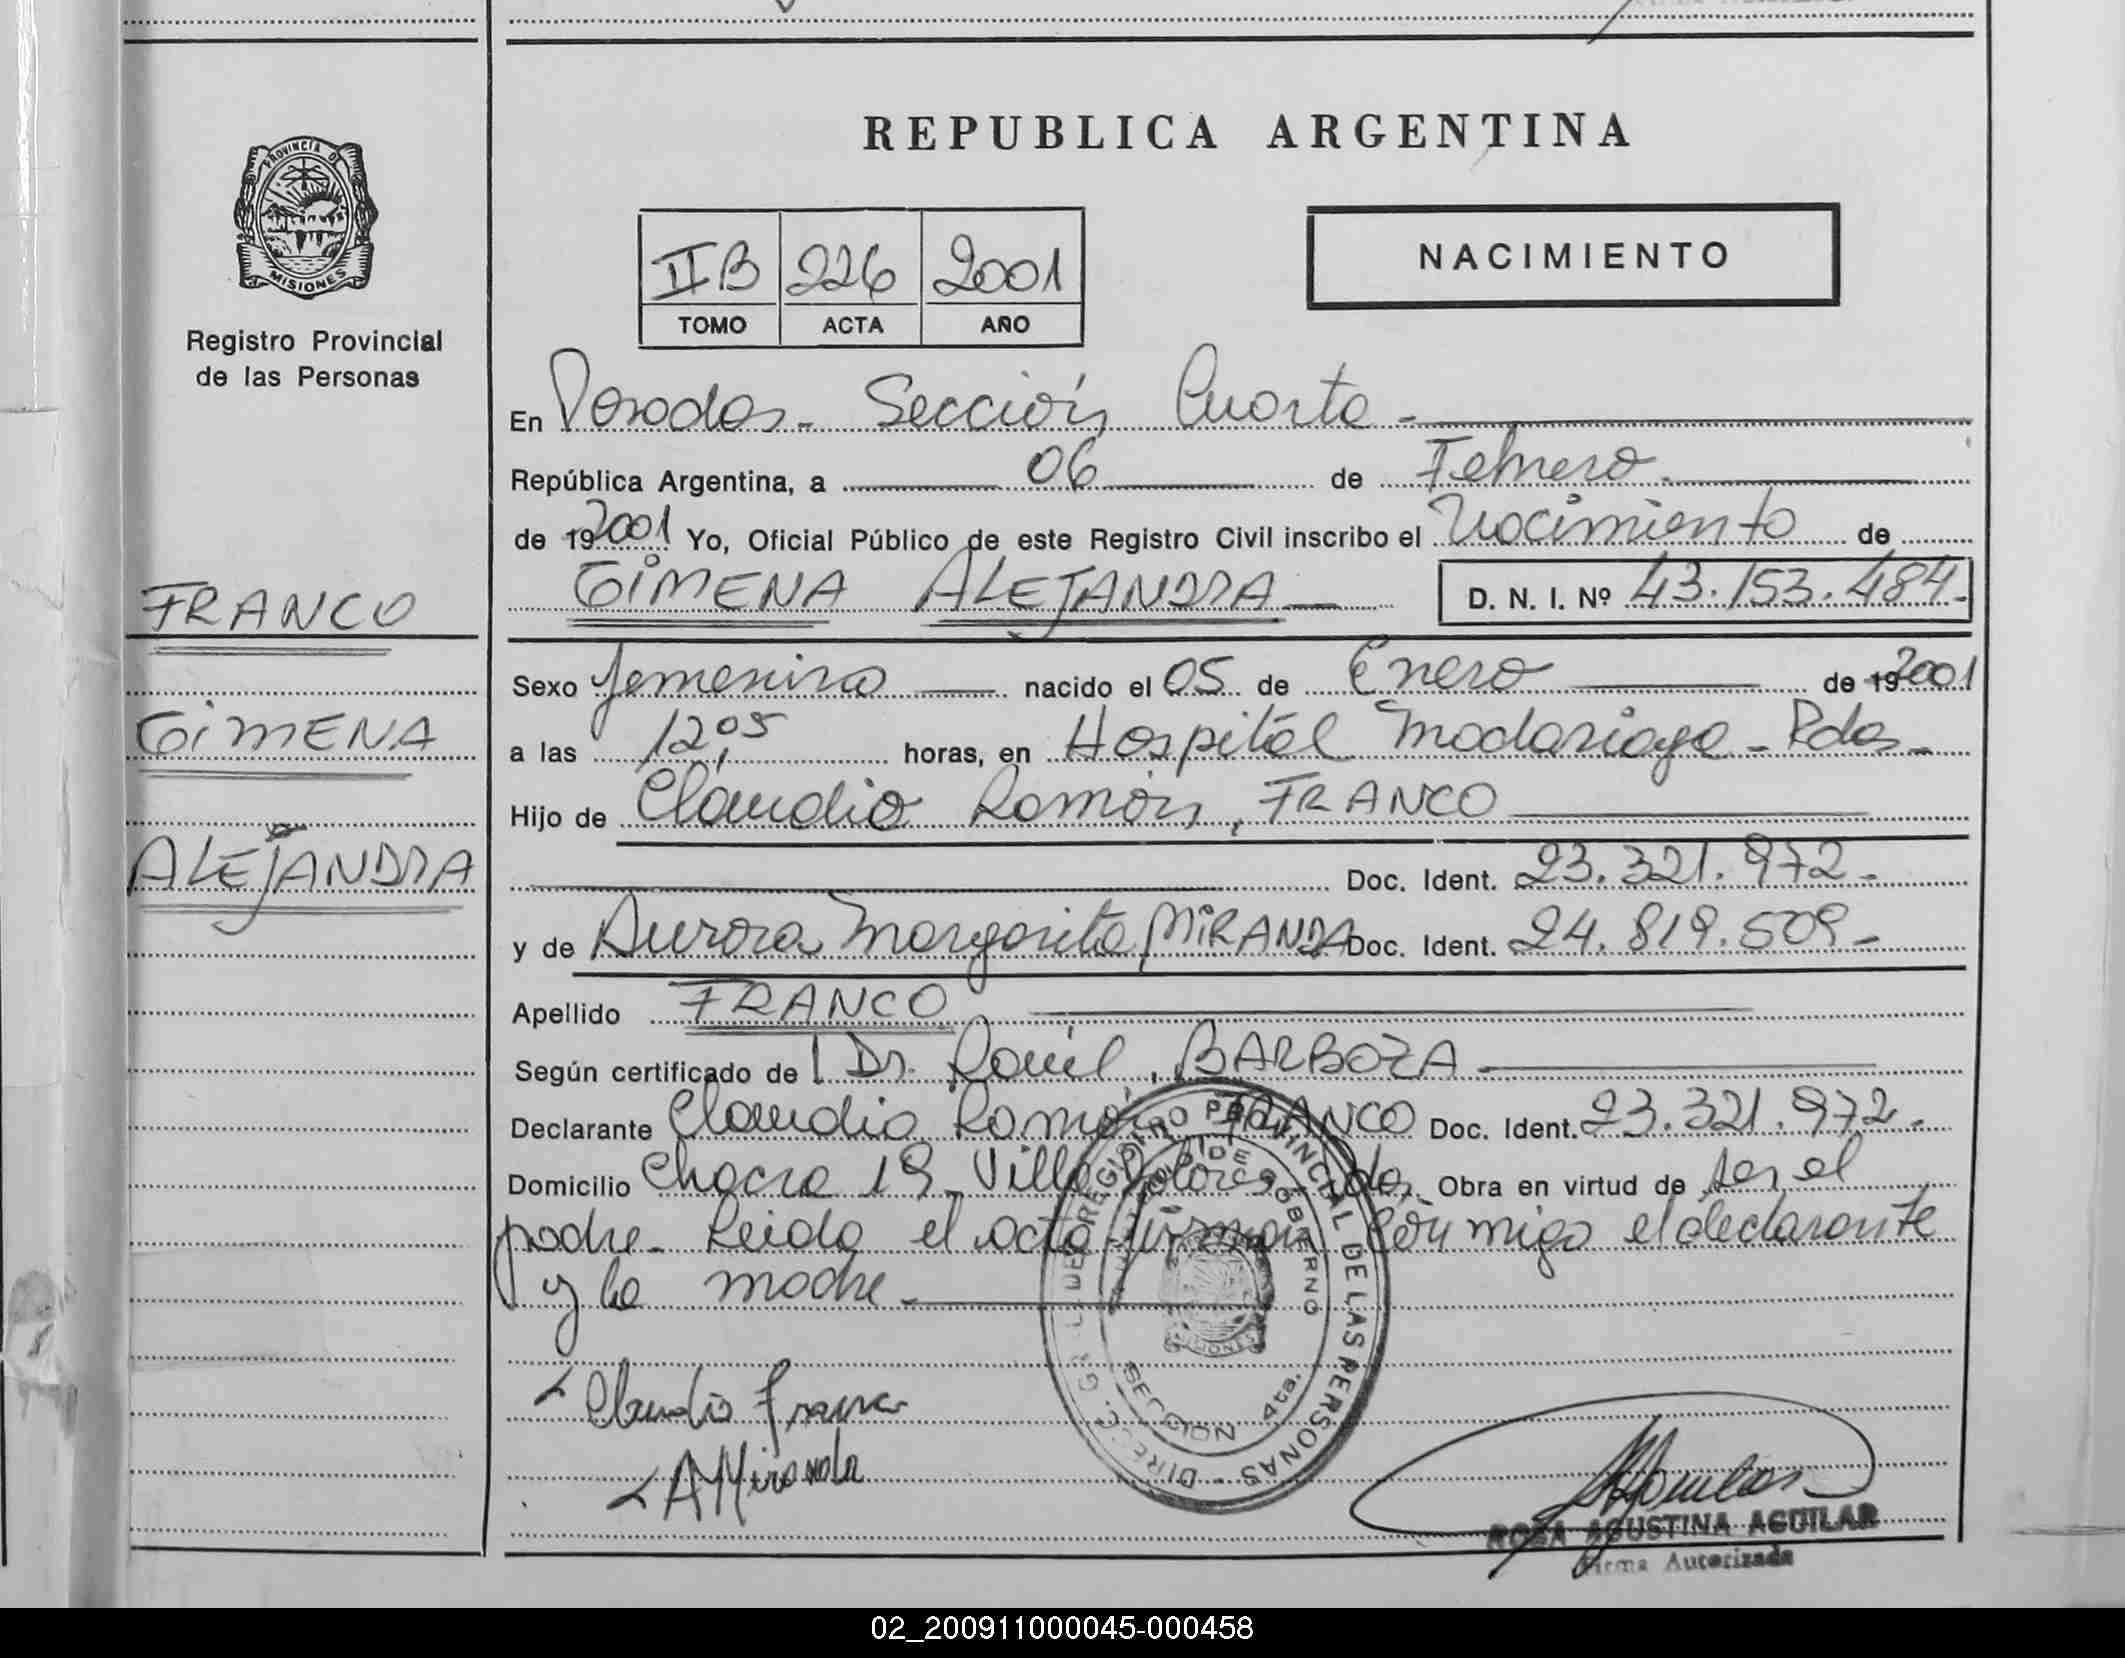 PROVINCIA DE
MISIONES
Registro Provincial
de las Personas
FRANCO
GiMENA
ALEJANDRA
REPUBLICA ARGENTINA
IIB 226 2001
TOMO ACTA AÑO
NACIMIENTO
En Posadas - Sección Cuarta -
República Argentina, a 06 de Febrero
de 19 2001 Yo, Oficial Público de este Registro Civil inscribo el Nacimiento de
GiMENA ALEJANDRA D. N. I. Nº 43.153.484.-
Sexo femenino nacido el 05 de Enero de 19 2001
a las 12,05 horas, en Hospital Madariaga - Pdas -
Hijo de Claudio Ramón, FRANCO
Doc. Ident. 23.321.972.-
y de Aurora Margarita MiRANDA Doc. Ident. 24.819.509 -
Apellido FRANCO
Según certificado de l Dr. Raúl, BARBOZA
Declarante Claudio Ramón FRANCO Doc. Ident. 23.321.972.-
Domicilio Chacra 19 - Villa Dolores - Pdas. Obra en virtud de ser el
padre - Leida el acta firman conmigo el declarante
y la madre -
Claudio Franco
A Miranda
DIREC. GRAL. DE REGISTRO PROVINCIAL DE LAS PERSONAS
DE GOBIERNO
MISIONES
SECCION 4ta.
ROSA AGUSTINA AGUILAR
Firma Autorizada
02_200911000045-000458